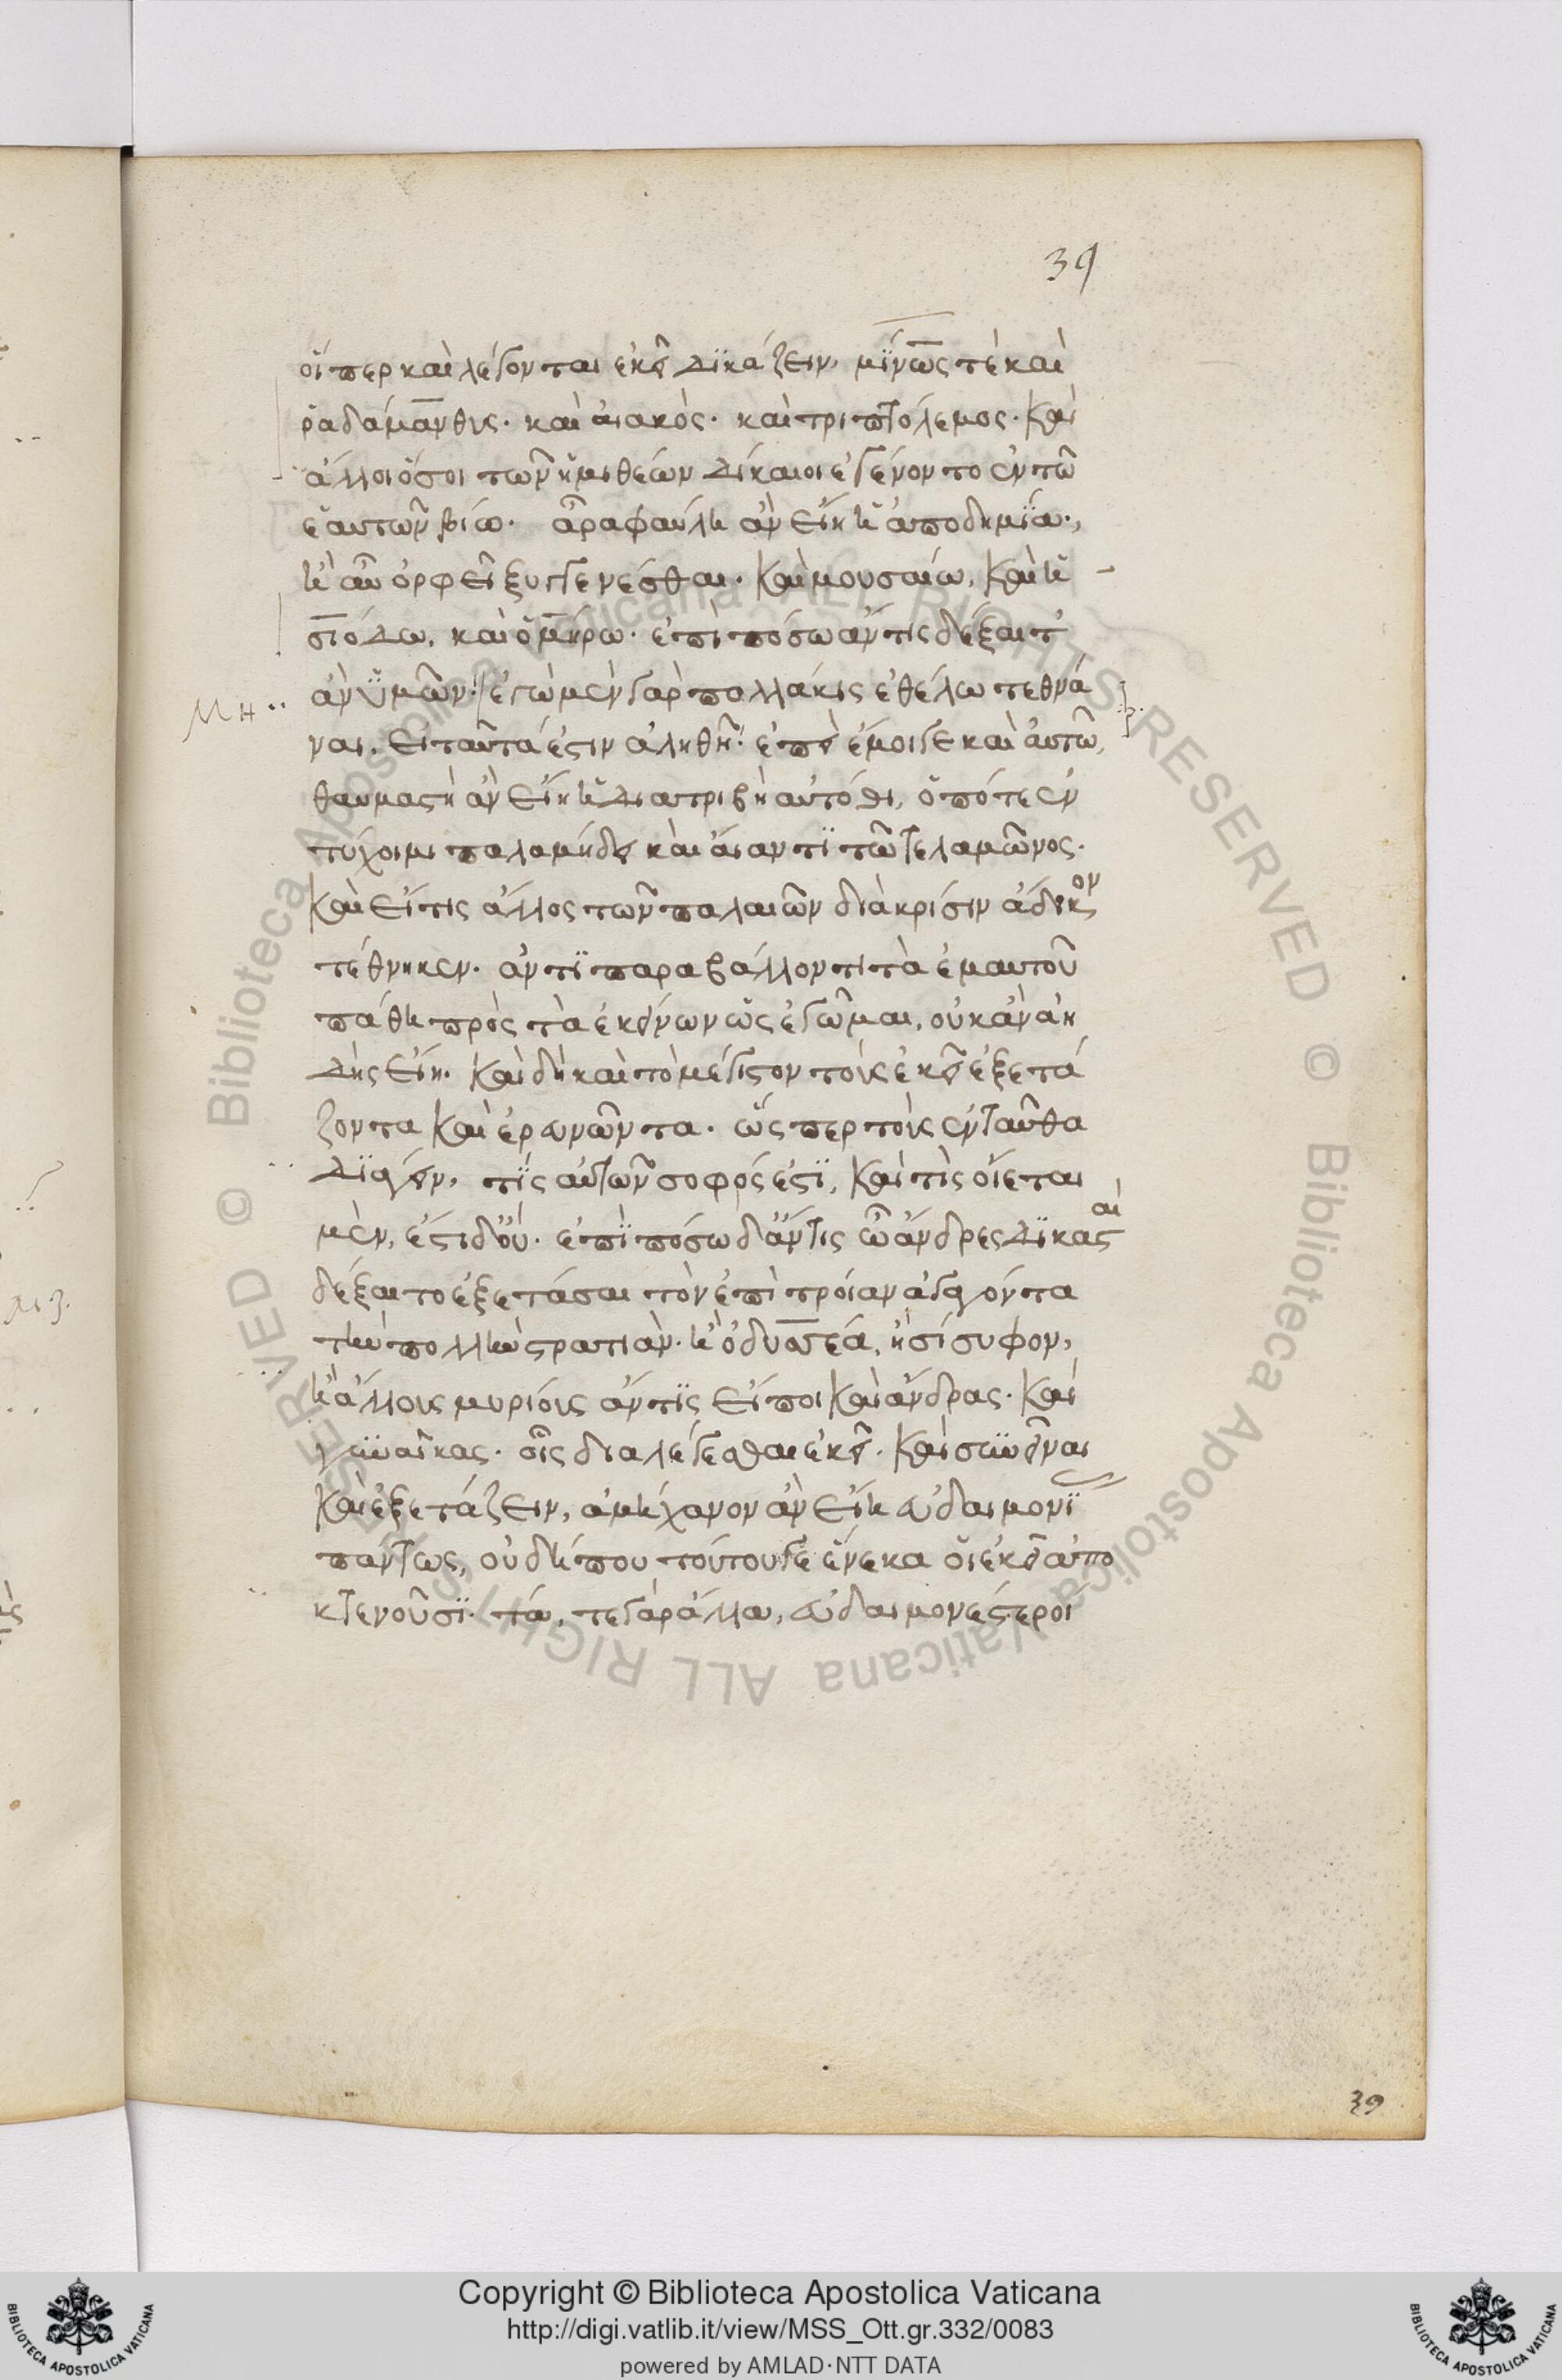 39
οἵπερ καὶ λέγονται ἐκεῖ δϊκάζειν, μΐνως τὲ καὶ
ῥαδάμανθις. καὶ αἰακός. καὶ τριπτόλεμος. καὶ
ἄλλοι ὅσοι τῶν ἡμιθέων δίκαιοι ἐγένοντο ἐν τῶ
ἑαυτῶν βίω. ἆρα φαύλη ἂν εἴη ἡ ἀποδημΐα.,
ἢ αὖ ὀρφεῖ ξυγγενέσθαι. καὶ μουσαίω, καὶ ἡ
σιόδω, καὶ ὁμήρω. ἐπὶ πόσω ἄν τις δέξαιτ'
ἂν ὑμῶν. ἐγὼ μὲν γὰρ πολλάκις ἐθέλω τεθνά
Μη..
ναι, εἰ ταῦτά ἐστιν ἀληθῆ. ἐπεὶ ἔμοιγε καὶ αὐτῶ,
θαυμαστὴ ἂν εἴη ἡ διατριβὴ αὐτόθι, ὁπότε ἐν
τύχοιμι παλαμήδει καὶ αἴαντϊ τῶ τελαμῶνος.
καὶ εἴ τις ἄλλος τῶν παλαιῶν διὰ κρίσιν ἄδικον
τέθνηκεν. ἀντϊπαραβάλλοντι τὰ ἐμαυτοῦ
πάθη πρὸς τὰ ἐκείνων ὡς ἐγῶμαι, οὐκ ἂν ἀη
δὴς εἴη. καὶ δὴ καὶ τὸ μέγιστον τοὺς ἐκεῖ ἐξετά
ζοντα καὶ ἐρευνῶντα. ὥσπερ τοὺς ἐνταῦθα
δϊάγειν, τΐς αὐτῶν σοφός ἐστϊ, καὶ τὶς οἴεται
μὲν, ἔστι δ' οὔ. ἐπϊ πόσω δ' ἄν τις ὦ ἄνδρες δϊκασταὶ
δέξαιτο ἐξετάσαι τὸν ἐπὶ τροίαν ἀγαγόντα
τὴν πολλὴν στρατιὰν. ἢ ὀδυσσέα, ἢ σίσυφον,
ἢ ἄλλους μυρίους ἄν τϊς εἴποι καὶ ἄνδρας. καὶ
γυναῖκας. οἷς διαλέγεσθαι ἐκεῖ. καὶ συνεῖναι
καὶ ἐξετάζειν, ἀμήχανον ἂν εἴη εὐδαιμονϊ
πάντως, οὐ δήπου τούτου γε ἕνεκα οἱ ἐκεῖ ἀπο
κτενοῦσϊ. τά, τε γὰρ ἄλλα, εὐδαιμονέστεροι
39
Copyright © Biblioteca Apostolica Vaticana
http://digi.vatlib.it/view/MSS_Ott.gr.332/0083
powered by AMLAD·NTT DATA